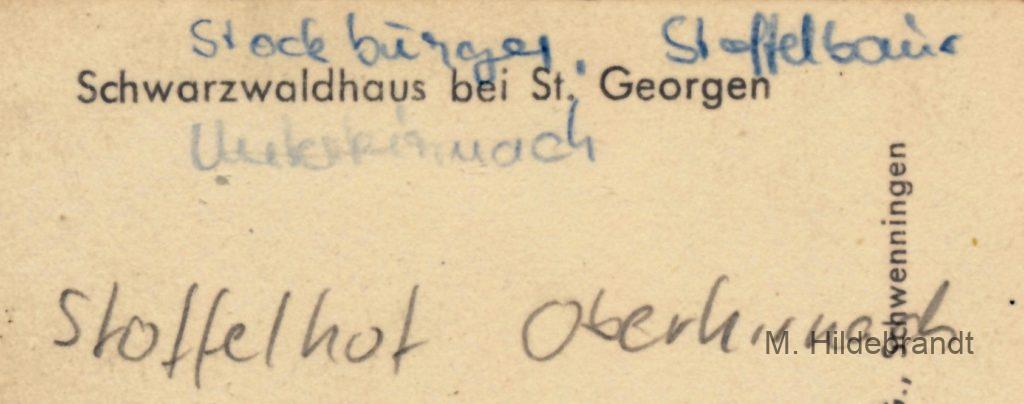 Stockbürger, Stoffelbaur
Schwarzwaldhaus bei St. Georgen
Unterkirnach
Stoffelhof Oberkirnach
M. Hildebrandt
., Schwenningen